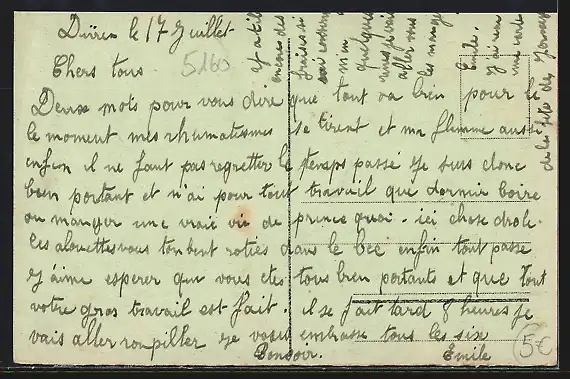 Düren le 17 Juillet
5160
Chers tous.
Deux mots pour vous dire que tout va bien pour le
le moment mes rhumatismes se tirent et ma flemme aussi
enfin il ne faut pas regretter le temps passé je suis donc
bien portant et n'ai pour tout travail que dormir boire
ou manger une vraie vie de prince quoi. ici chose drole.
les alouettes vous tombent roties dans le bec enfin tout passe
j'aime esperer que vous etes tous bien portants et que tout
votre gros travail est fait. il se fait tard 8 heures je
vais aller roupiller je vous embrasse tous les six
Bonsoir. Emile
5€
y a til
encore des
fraises si
oui
m'en
quelques
unes je vais
aller vous
les manger
Emile.
j'ai reçu
une carte
de la fête des